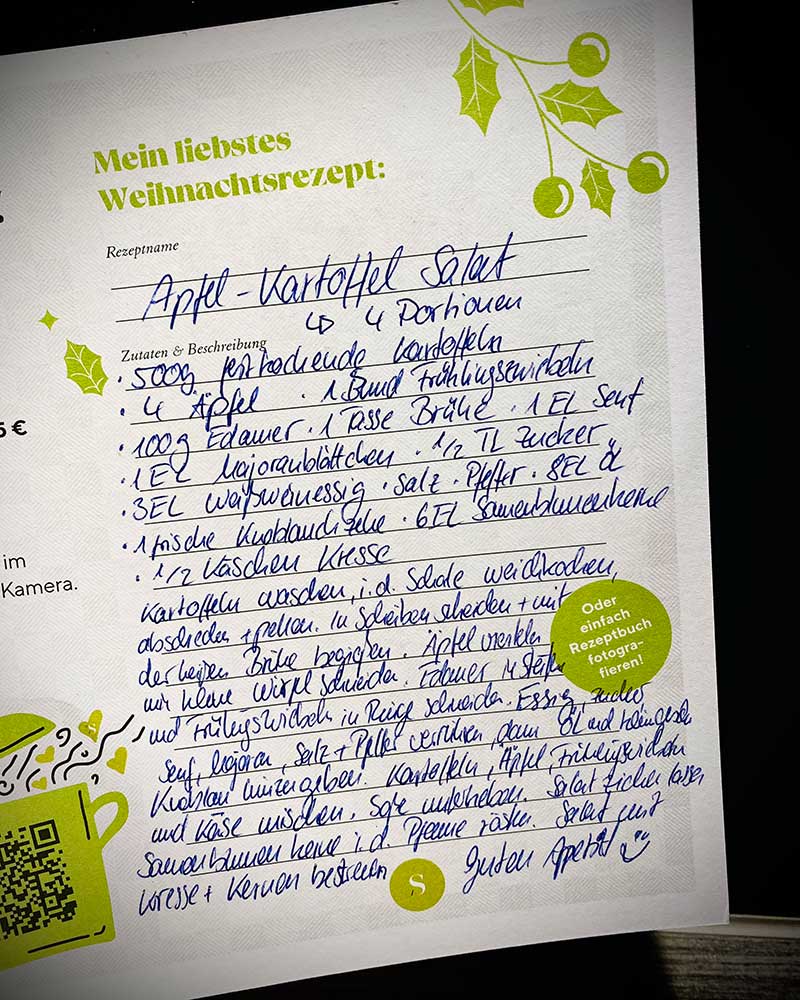 Mein liebstes
Weihnachtsrezept:
Rezeptname
Apfel-Kartoffel Salat
↳ 4 Portionen
Zutaten & Beschreibung
• 500g festkochende Kartoffeln
• 4 Äpfel • 1 Bund Frühlingszwiebeln
• 100g Edamer • 1 Tasse Brühe • 1 EL Senf
• 1 EL Majoranblättchen • 1/2 TL Zucker
• 3EL Weißweinessig • Salz • Pfeffer • 8EL Öl
• 1 frische Knoblauchzehe • 6EL Sonnenblumenkerne
• 1/2 Kästchen Kresse
Kartoffeln waschen, i.d. Schale weichkochen,
abschrecken + pellen. In Scheiben schneiden + mit
der heißen Brühe begießen. Äpfel vierteln
und kleine Würfel schneiden. Edamer in Streifen
und Frühlingszwiebeln in Ringe schneiden. Essig, Zucker
Senf, Majoran, Salz + Pfeffer verrühren, dann Öl und
Knoblauch hinzugeben. Kartoffeln, Äpfel, Frühlingszwiebeln
und Käse mischen. Soße unterheben. Salat ziehen lassen
Sonnenblumenkerne i.d. Pfanne rösten. Salat mit
Kresse + Kernen bestreuen
Guten Appetit
Oder
einfach
Rezeptbuch
fotogra-
fieren!
5 €
im
Kamera.
S